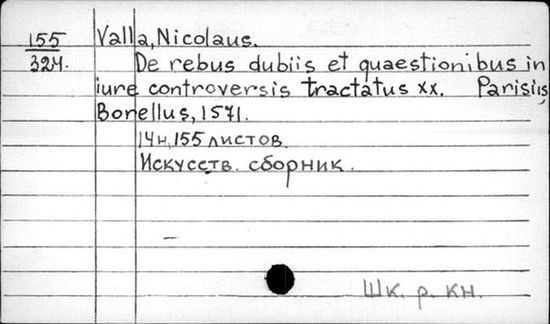 155 Valla, Nicolaus.
324. De rebus dubiis et quaestionibus in
iure controversis tractatus xx. Parisiis,
Borellus, 1571.
14н, 155 листов.
Искусств. сборник.
Шк. р. кн.